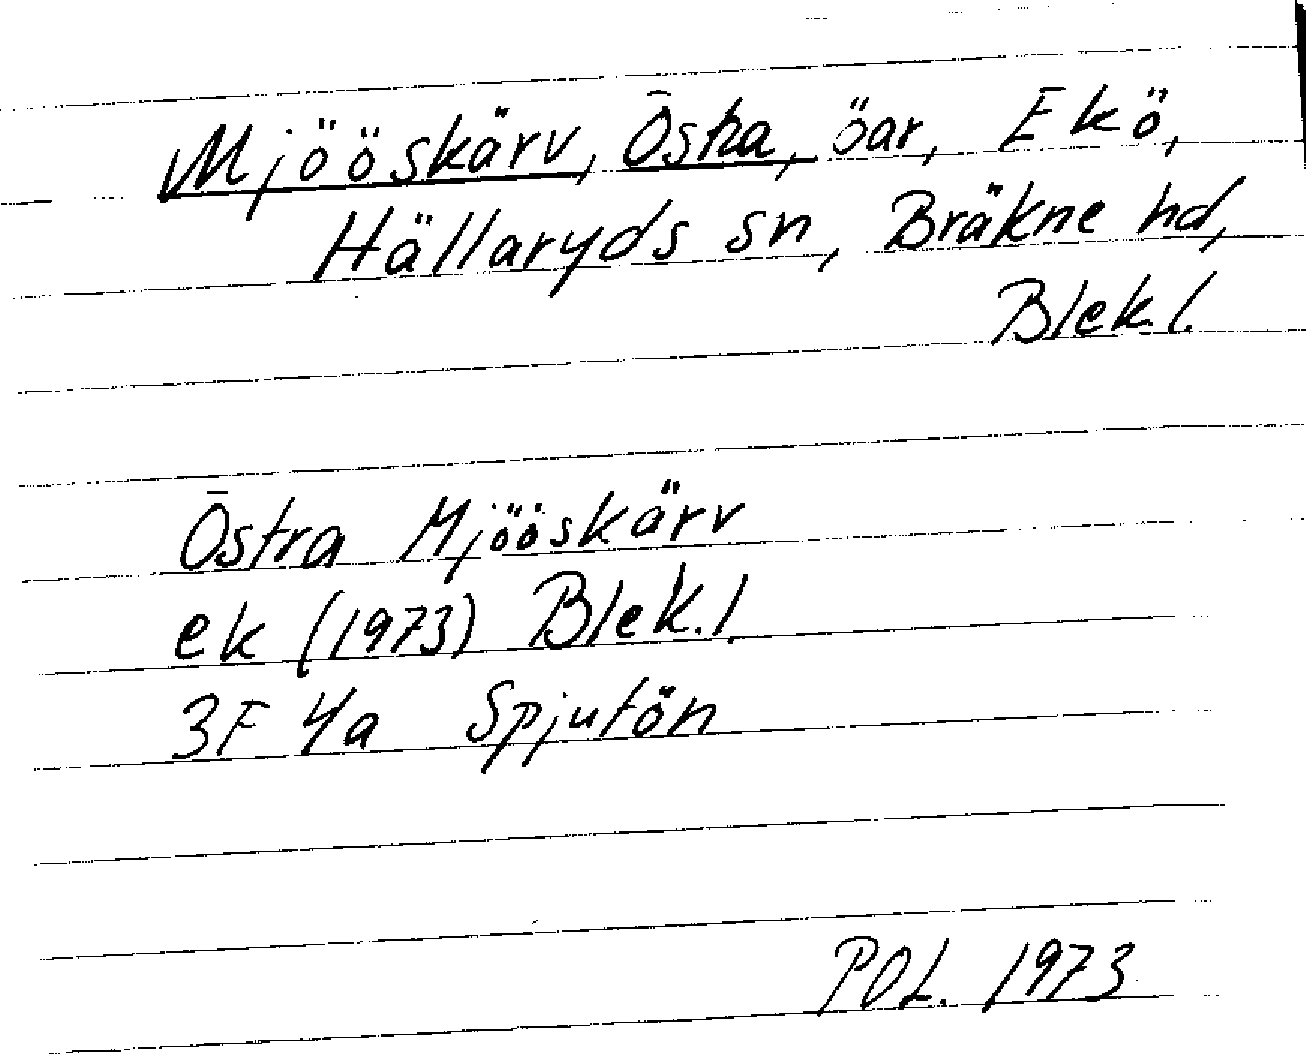 Mjööskärv, Östra, öar, Ekö,
Hällaryds sn, Bräkne hd,
Blek.l.
Östra Mjööskärv
ek (1973) Blek.l.
3F 4a Spjutön
POL. 1973